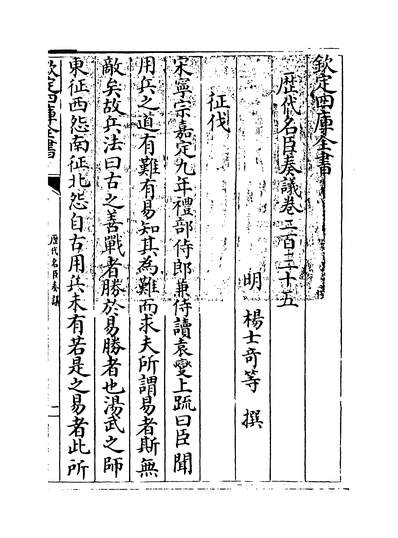 欽定四庫全書
歴代名臣奏議卷二百三十五
明　楊士竒等　撰
征伐
宋寧宗嘉定九年禮部侍郎兼侍讀袁燮上疏曰臣聞
用兵之道有難有易知其為難而求夫所謂易者斯無
敵矣故兵法曰古之善戰者勝於易勝者也湯武之師
東征西怨南征北怨自古用兵未有若是之易者此所
欽定四庫全書
歴代名臣奏議
一